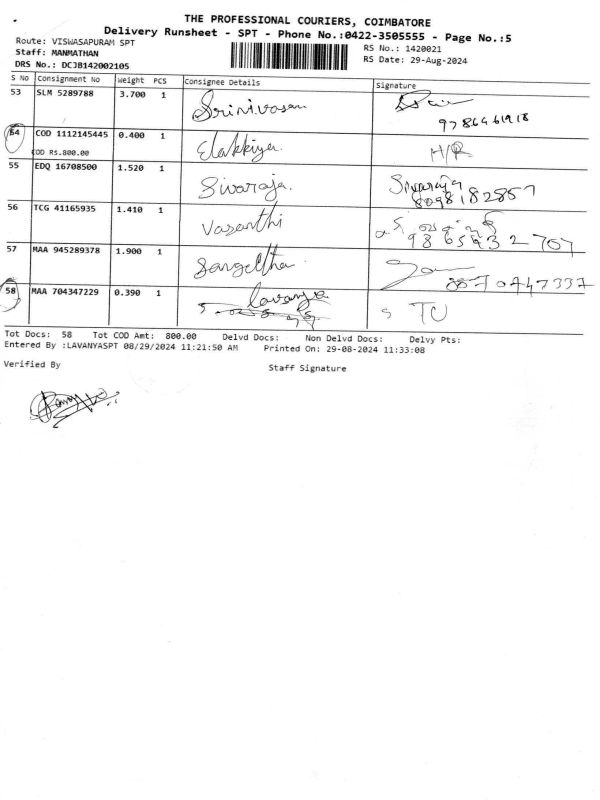 THE PROFESSIONAL COURIERS, COIMBATORE
Delivery Runsheet - SPT - Phone No.:0422-3505555 - Page No.:5
Route: VISWASAPURAM SPT
RS No.: 1420021
Staff: MANMATHAN
RS Date: 29-Aug-2024
DRS No.: DCJB142002105
S No Consignment No Weight PCS Consignee Details Signature
53 SLM 5289788 3.700 1 Srinivasan
9786461918
54 COD 1112145445 0.400 1 Elakkiya. H/R
COD RS.800.00
55 EDQ 16708500 1.520 1 Sivaraja. Sivaraja
8098182857
56 TCG 41165935 1.410 1 Vasanthi
57 MAA 945289378 1.900 1 Sangeitha
8870747337
58 MAA 704347229 0.390 1 Lavanya
Tot Docs: 58 Tot COD Amt: 800.00 Delvd Docs: Non Delvd Docs: Delvy Pts:
Entered By :LAVANYASPT 08/29/2024 11:21:50 AM Printed On: 29-08-2024 11:33:08
Verified By Staff Signature